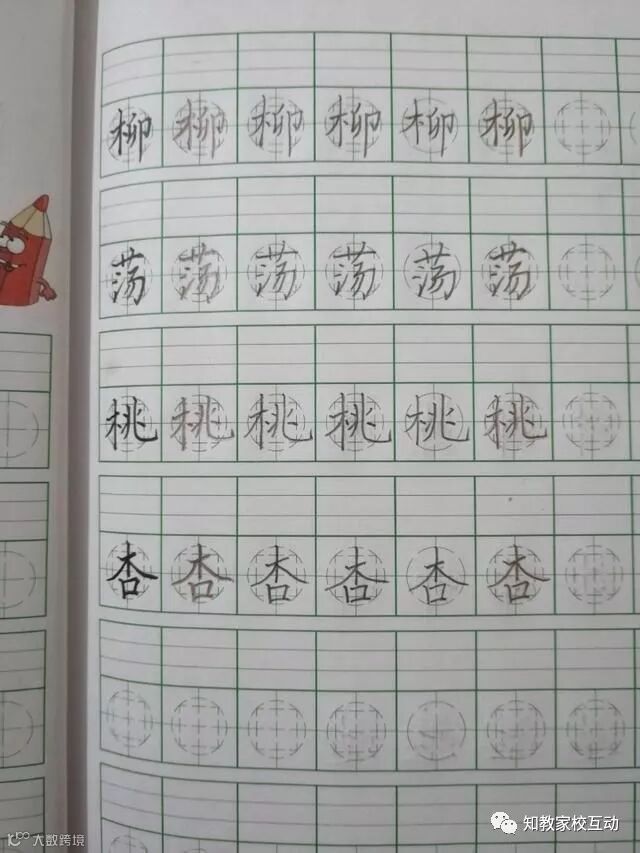 柳 柳 柳 柳 柳 柳
荡 荡 荡 荡 荡 荡
桃 桃 桃 桃 桃 桃
杏 杏 杏 杏 杏 杏
知教家校互动
大数跨境